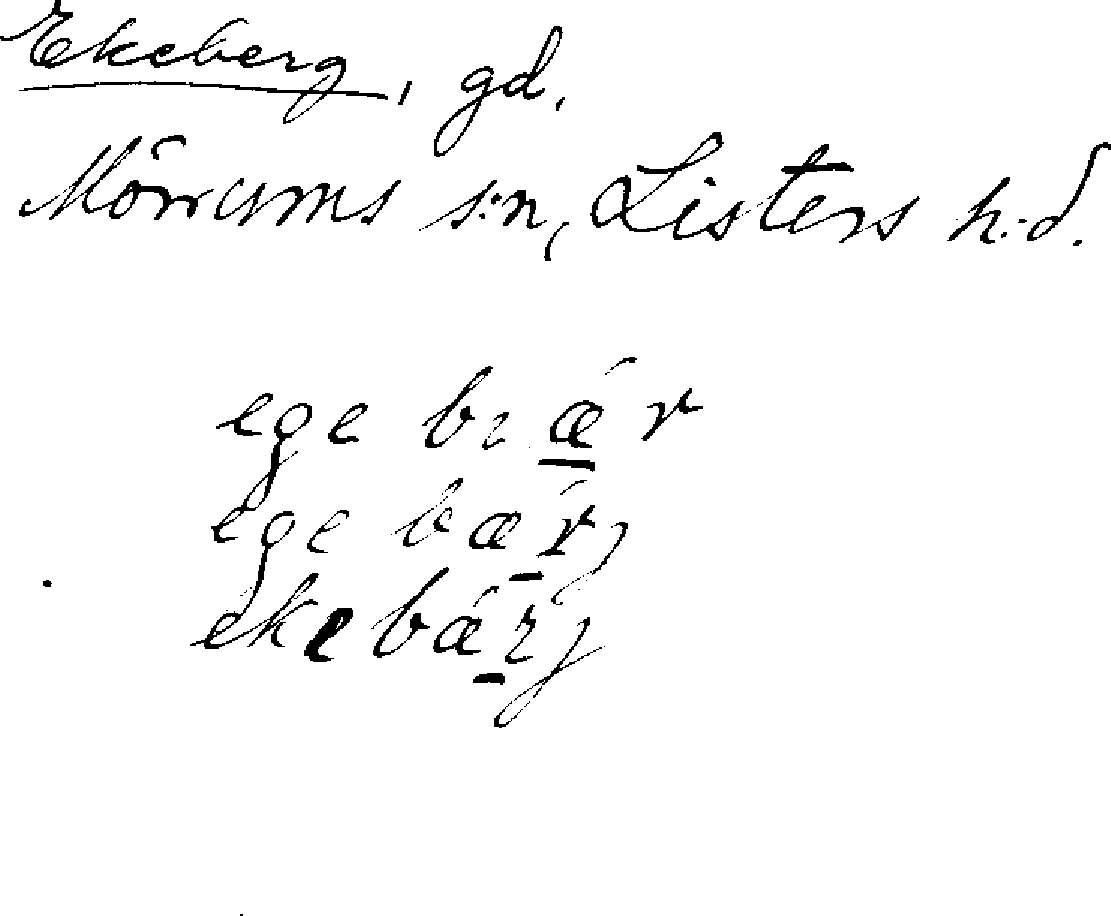 Ekeberg, gd.
Mörrums s:n, Listers h:d.
ege bıǽr
ege bæŕj
ekebǽrj